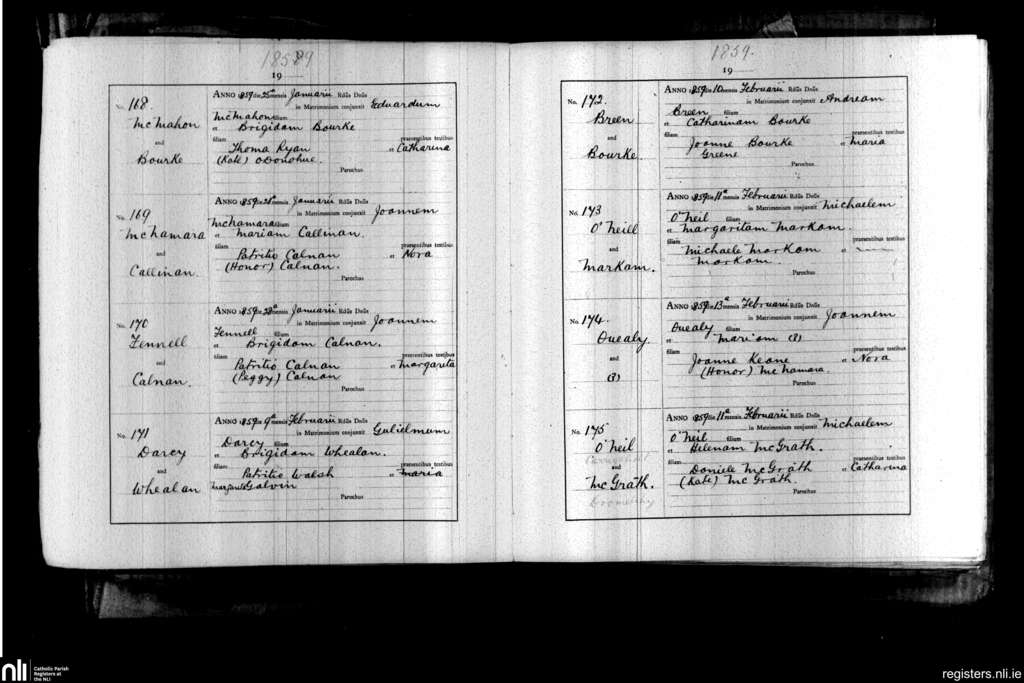 1859
19
No. 168.
McMahon
and
Bourke
ANNO 1859 die 25a mensis Januarii Rdûs Dnûs
in Matrimonium conjunxit Eduardum
McMahon filium
et Brigidam Bourke
filiam praesentibus testibus
Thoma Ryan et Catharina
(Kate) O'Donohue.
Parochus
No. 169
McNamara
and
Callinan.
ANNO 1859 die 26a mensis Januarii Rdûs Dnûs
in Matrimonium conjunxit Joannem
McNamara filium
et Mariam Callinan.
filiam praesentibus testibus
Patritio Calnan et Nora
(Honor) Calnan.
Parochus
No. 170
Fennell
and
Calnan.
ANNO 1859 die 28a mensis Januarii Rdûs Dnûs
in Matrimonium conjunxit Joannem
Fennell filium
et Brigidam Calnan.
filiam praesentibus testibus
Patritio Calnan et Margarita
(Peggy) Calnan
Parochus
No. 171
Darcy
and
Whealan
ANNO 1859 die 9a mensis Februarii Rdûs Dnûs
in Matrimonium conjunxit Gulielmum
Darcy filium
et Brigidam Whealan.
filiam praesentibus testibus
Patritio Walsh et Maria
Galvin
Parochus
1859.
19
No. 172.
Breen
and
Bourke.
ANNO 1859 die 10 mensis Februarii Rdûs Dnûs
in Matrimonium conjunxit Andream
Breen filium
et Catharinam Bourke
filiam praesentibus testibus
Joanne Bourke et Maria
Greene
Parochus
No. 173
O'Neill
and
Markam.
ANNO 1859 die 11a mensis Februarii Rdûs Dnûs
in Matrimonium conjunxit Michaelem
O'Neil filium
et Margaritam Markam.
filiam praesentibus testibus
Michaele Markam et —
Markam.
Parochus
No. 174.
Quealy
and
(?)
ANNO 1859 die 13a mensis Februarii Rdûs Dnûs
in Matrimonium conjunxit Joannem
Quealy filium
et Mariam (?)
filiam praesentibus testibus
Joanne Keane et Nora
(Honor) McNamara.
Parochus
No. 175
O'Neil
and
McGrath.
ANNO 1859 die 11a mensis Februarii Rdûs Dnûs
in Matrimonium conjunxit Michaelem
O'Neil filium
et Helenam McGrath.
filiam praesentibus testibus
Daniele McGrath et Catharina
(Kate) McGrath.
Parochus
nli
Catholic Parish
Registers at
the NLI
registers.nli.ie